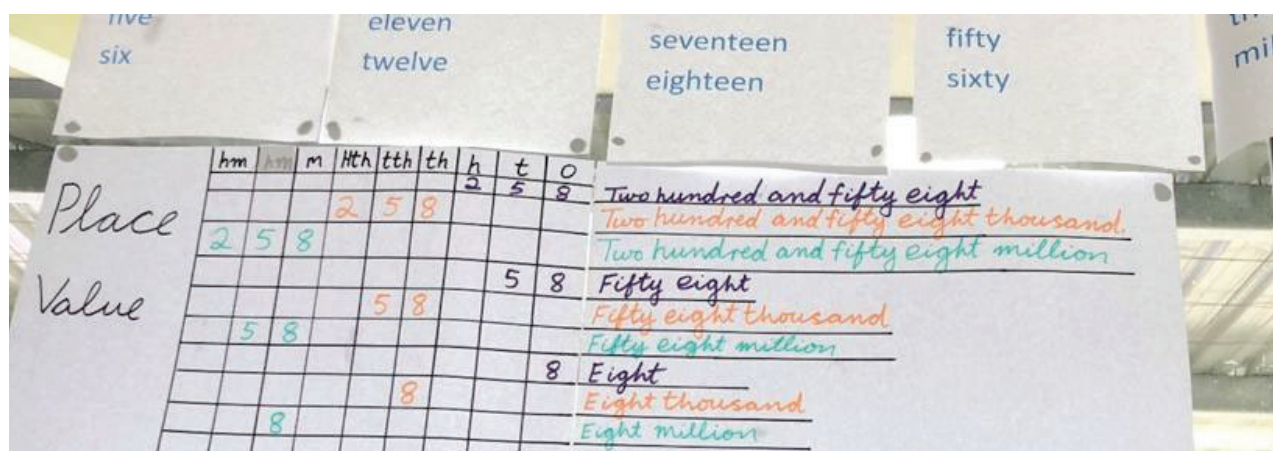 five
six
eleven
twelve
seventeen
eighteen
fifty
sixty
Place
Value
hm hm m Hth tth th h t O
2 5 8 Two hundred and fifty eight
2 5 8 Two hundred and fifty eight thousand.
2 5 8 Two hundred and fifty eight million
5 8 Fifty eight
5 8 Fifty eight thousand
5 8 Fifty eight million
8 Eight
8 Eight thousand
8 Eight million